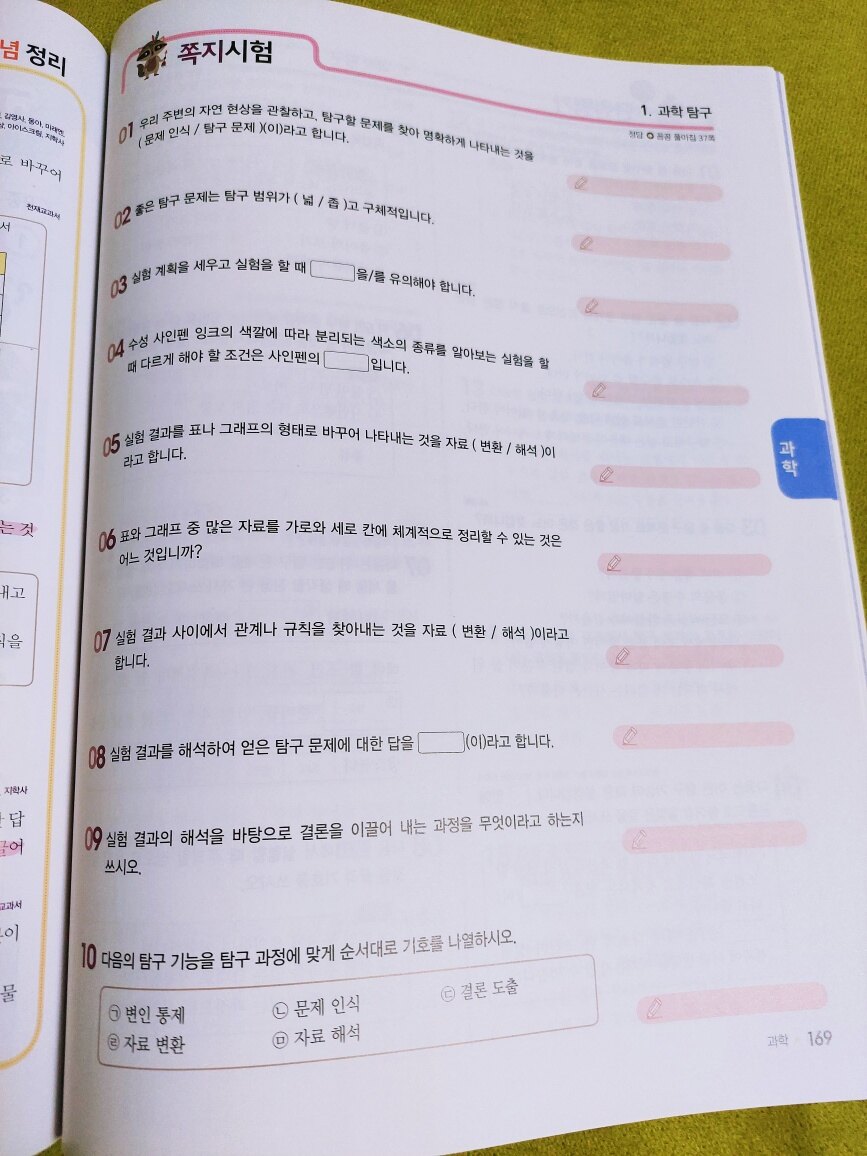 념 정리
쪽지시험
1. 과학 탐구
정답 꼼꼼 풀이집 37쪽
01 우리 주변의 자연 현상을 관찰하고, 탐구할 문제를 찾아 명확하게 나타내는 것을
( 문제 인식 / 탐구 문제 )(이)라고 합니다.
02 좋은 탐구 문제는 탐구 범위가 ( 넓 / 좁 )고 구체적입니다.
03 실험 계획을 세우고 실험을 할 때 을/를 유의해야 합니다.
04 수성 사인펜 잉크의 색깔에 따라 분리되는 색소의 종류를 알아보는 실험을 할
때 다르게 해야 할 조건은 사인펜의 입니다.
05 실험 결과를 표나 그래프의 형태로 바꾸어 나타내는 것을 자료 ( 변환 / 해석 )이
라고 합니다.
06 표와 그래프 중 많은 자료를 가로와 세로 칸에 체계적으로 정리할 수 있는 것은
어느 것입니까?
07 실험 결과 사이에서 관계나 규칙을 찾아내는 것을 자료 ( 변환 / 해석 )이라고
합니다.
08 실험 결과를 해석하여 얻은 탐구 문제에 대한 답을 (이)라고 합니다.
09 실험 결과의 해석을 바탕으로 결론을 이끌어 내는 과정을 무엇이라고 하는지
쓰시오.
10 다음의 탐구 기능을 탐구 과정에 맞게 순서대로 기호를 나열하시오.
㉠ 변인 통제 ㉡ 문제 인식 ㉢ 결론 도출
㉣ 자료 변환 ㉤ 자료 해석
과학
과학 169
김영사, 동아, 미래엔,
상, 아이스크림, 지학사
로 바꾸어
천재교과서
서
는 것
내고
식을
지학사
답
끌어
교과서
이
물